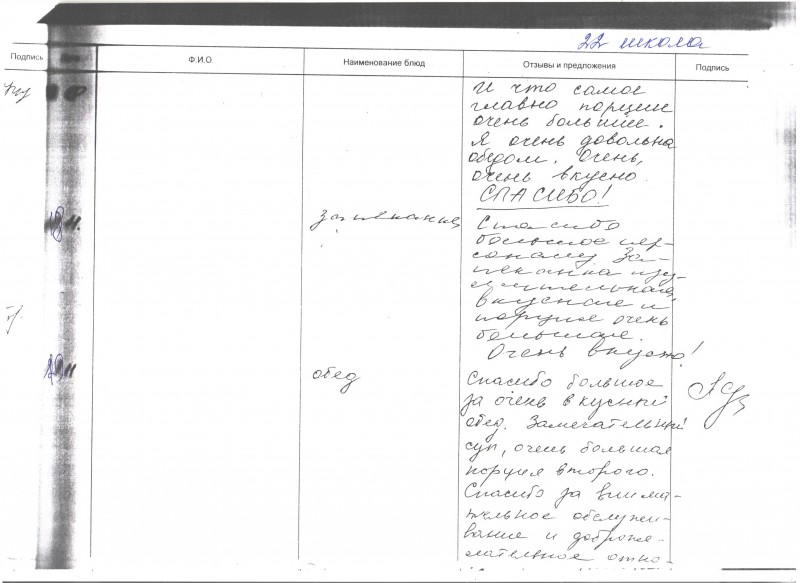 22 школа
Подпись
Ф.И.О.
Наименование блюд
Отзывы и предложения
Подпись
И что самое
главно порции
очень большие.
Я очень довольна
обедом. Очень,
очень вкусно.
СПАСИБО!
Запеканка
Спасибо
большое пер-
соналу. За-
пеканка изу-
мительная,
вкусная и
порция очень
большая.
Очень вкусно!
обед
Спасибо большое
за очень вкусный
обед. Замечательный
суп, очень большая
порция второго.
Спасибо за внима-
тельное обслужи-
вание и доброже-
лательное отно-